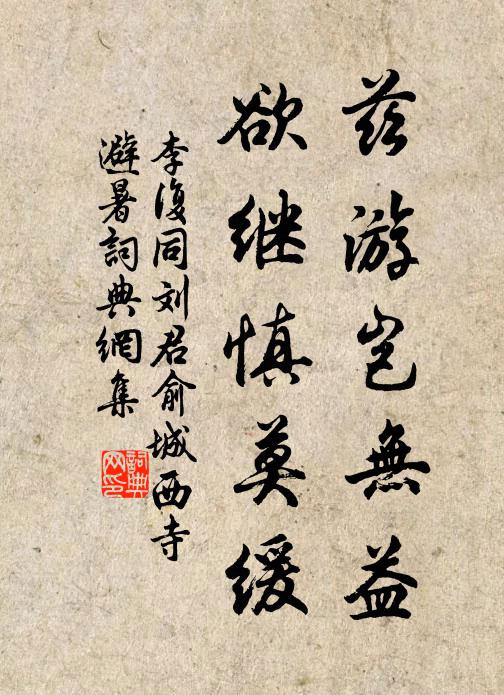 兹游岂無益
欲继慎莫缓
李復同刘君俞城西寺
避暑詞典網集
詞典网印